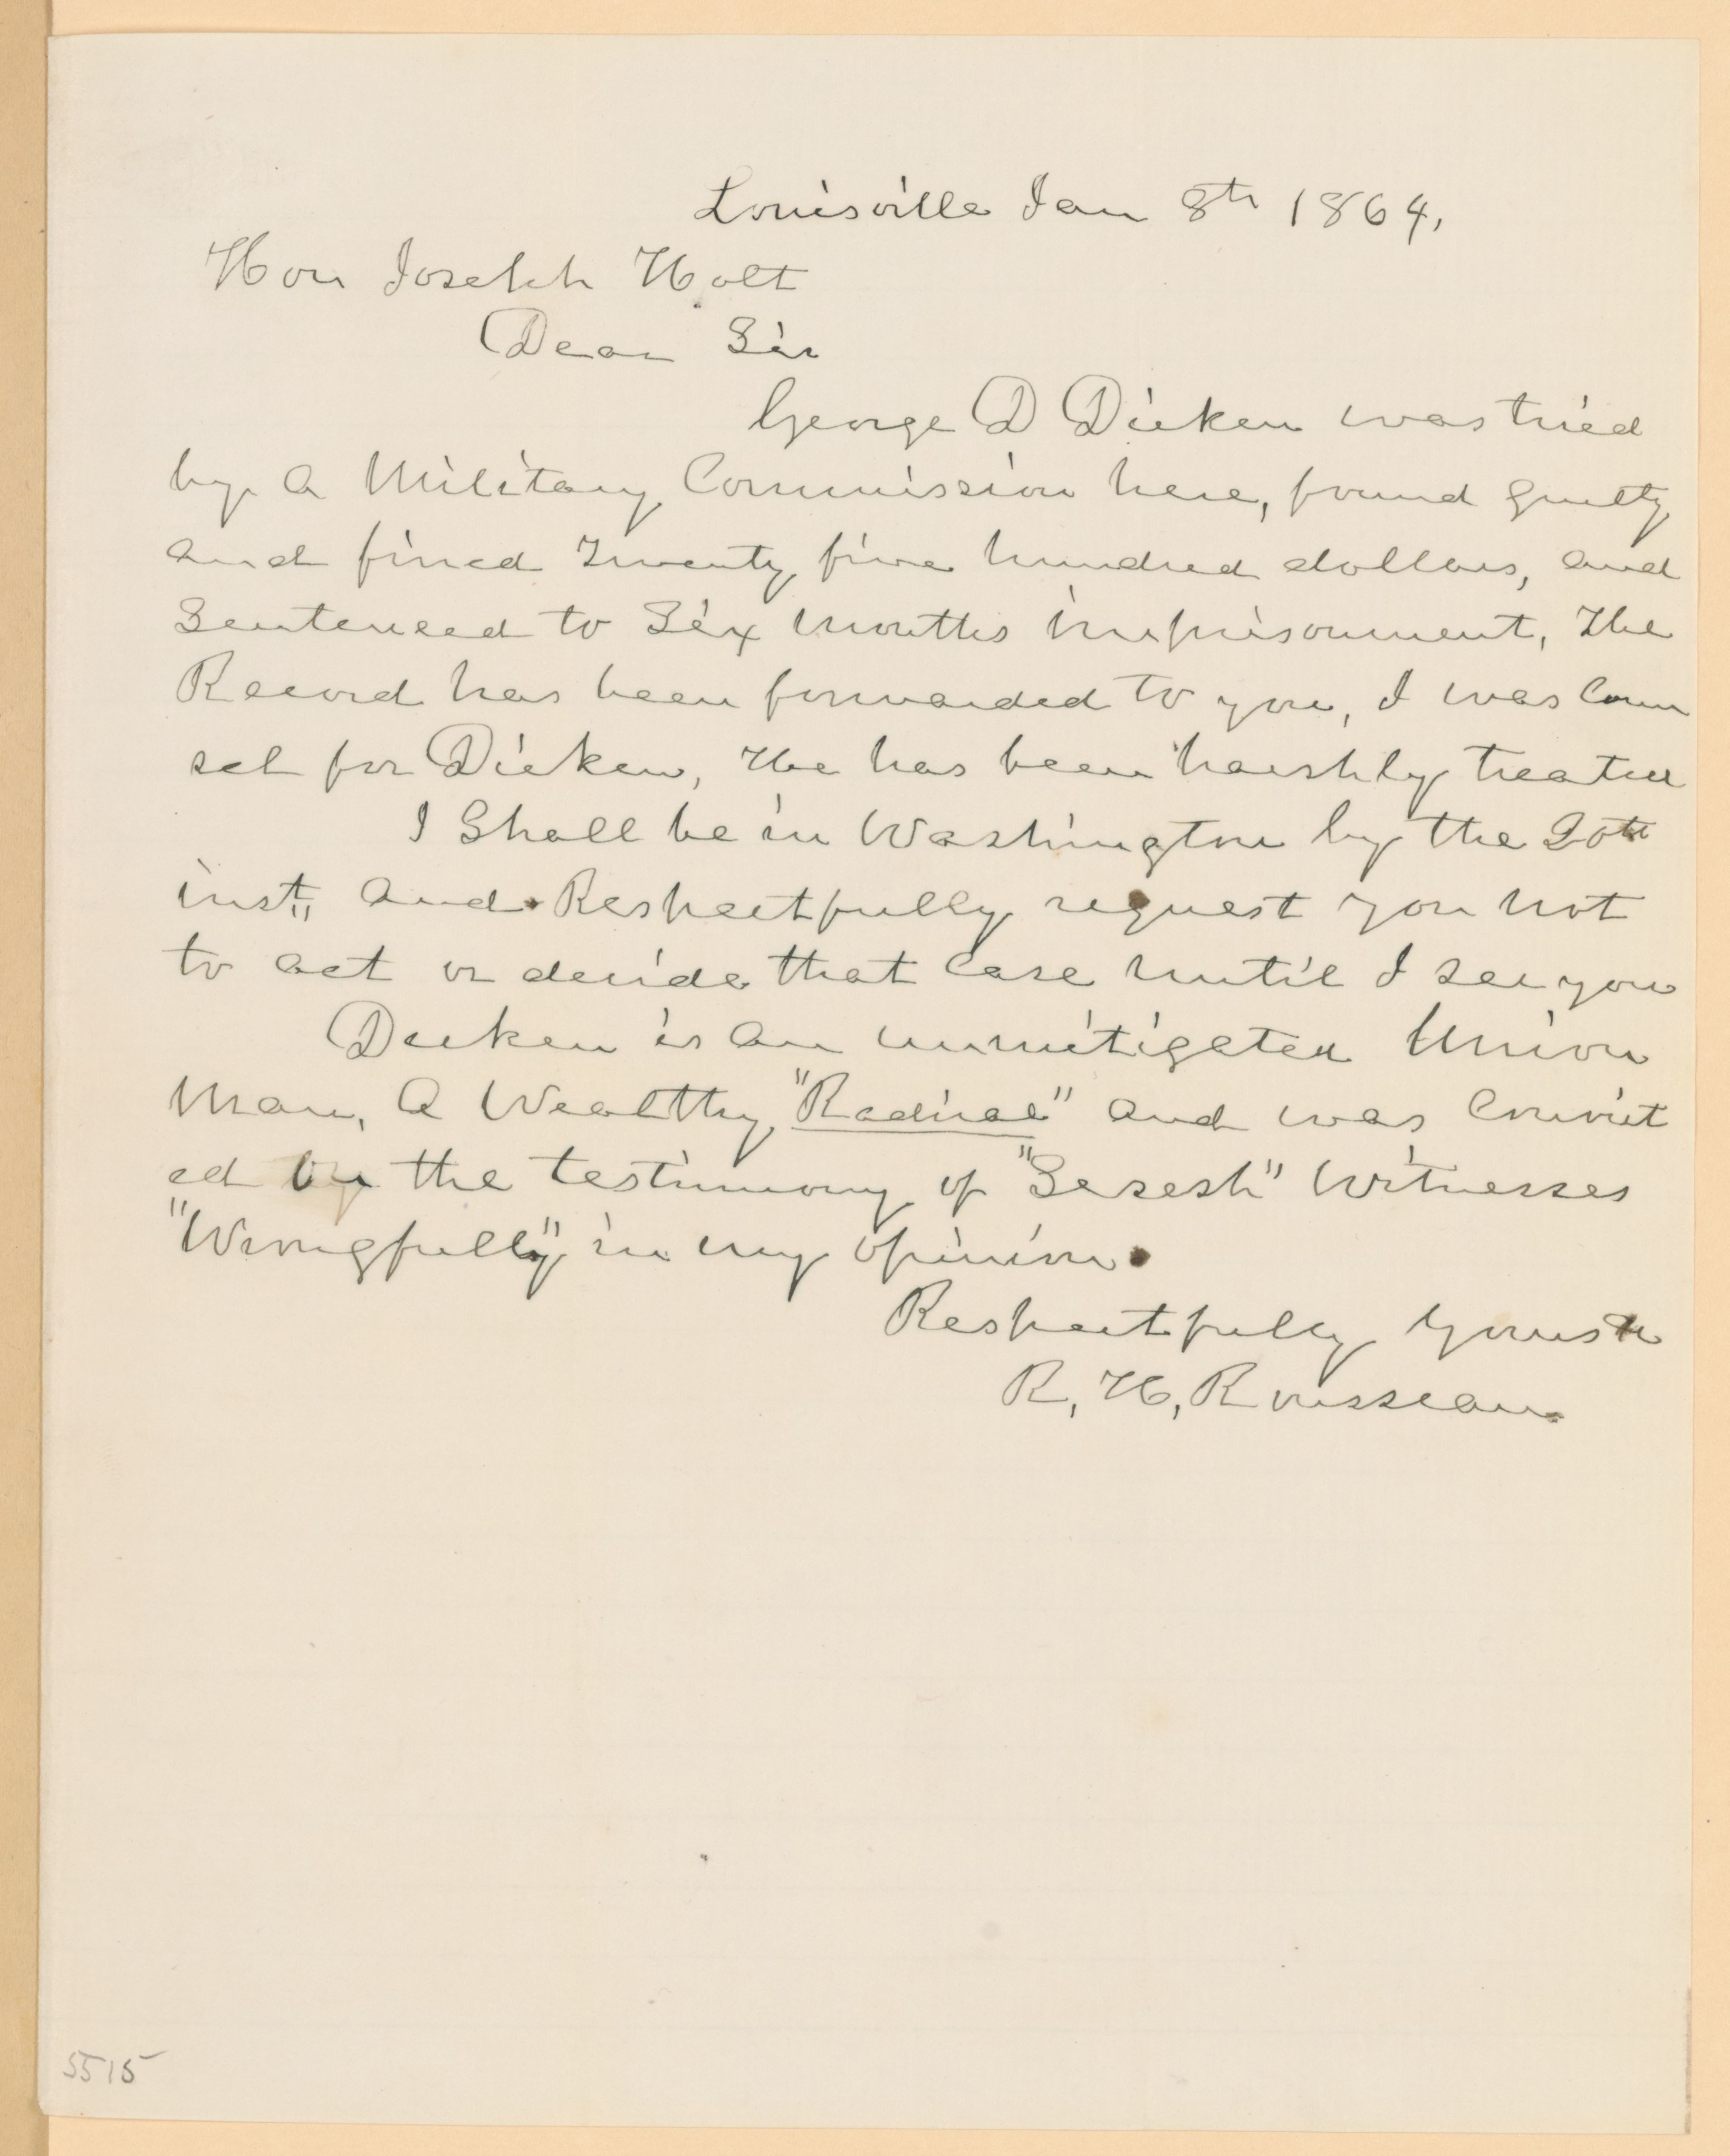 Louisville Jan 8th 1864,
Hon Joseph Holt
Dear Sir
George D Dicken was tried
by a Military Commission here, found guilty
and fined Twenty five hundred dollars, and
Sentenced to Six months imprisonment, The
Record has been forwarded to you, I was Coun
sel for Dicken, He has been harshly treated
I Shall be in Washington by the 20th
inst,, and Respectfully request you not
to act or decide that Case until I see you
Dicken is an unmitigated Union
Man, a Wealthy, "Radical" and was Convict
ed by the testimony of "Sesesh" Witnesses
"Wrongfully" in my opinion.
Respectfully Yours &c
R, H, Rousseau.
5515